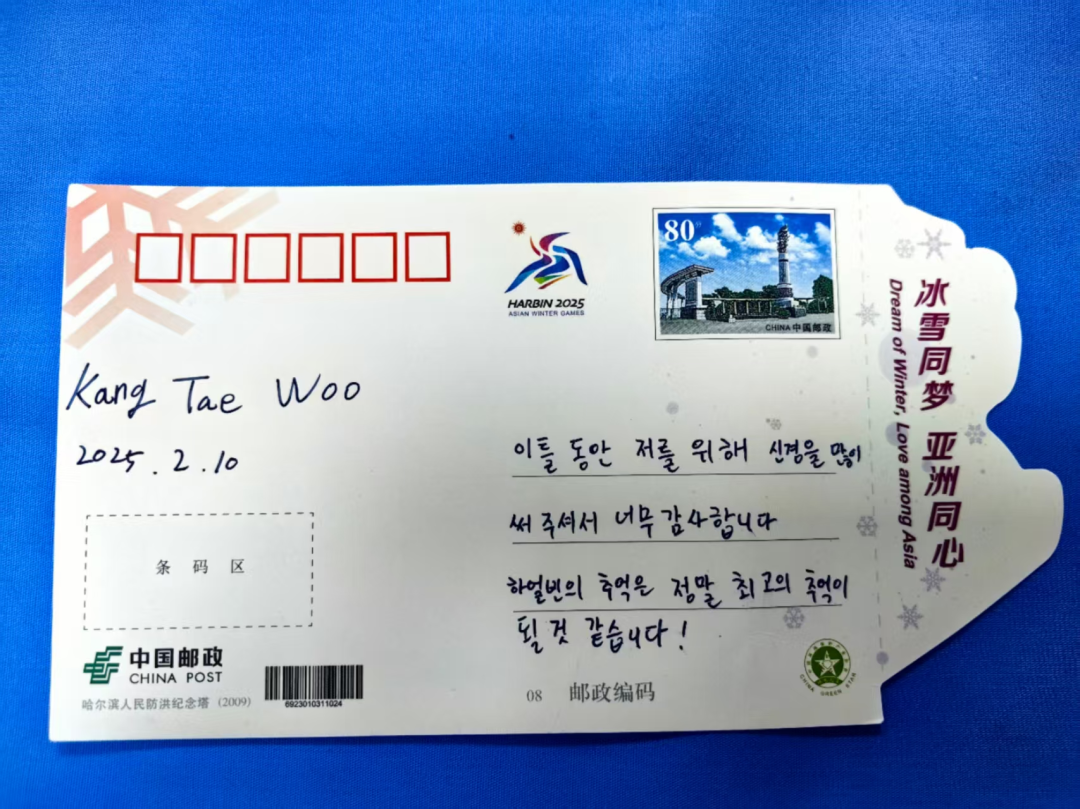 HARBIN 2025
ASIAN WINTER GAMES
80分
CHINA 中国邮政
冰雪同梦 亚洲同心
Dream of Winter, Love among Asia
Kang Tae Woo
2025.2.10
이틀 동안 저를 위해 신경을 많이
써주셔서 너무 감사합니다
하얼빈의 추억은 정말 최고의 추억이
될 것 같습니다!
条码区
中国邮政
CHINA POST
哈尔滨人民防洪纪念塔 (2009)
6923010311024
08 邮政编码
CHINA GREEN STAR